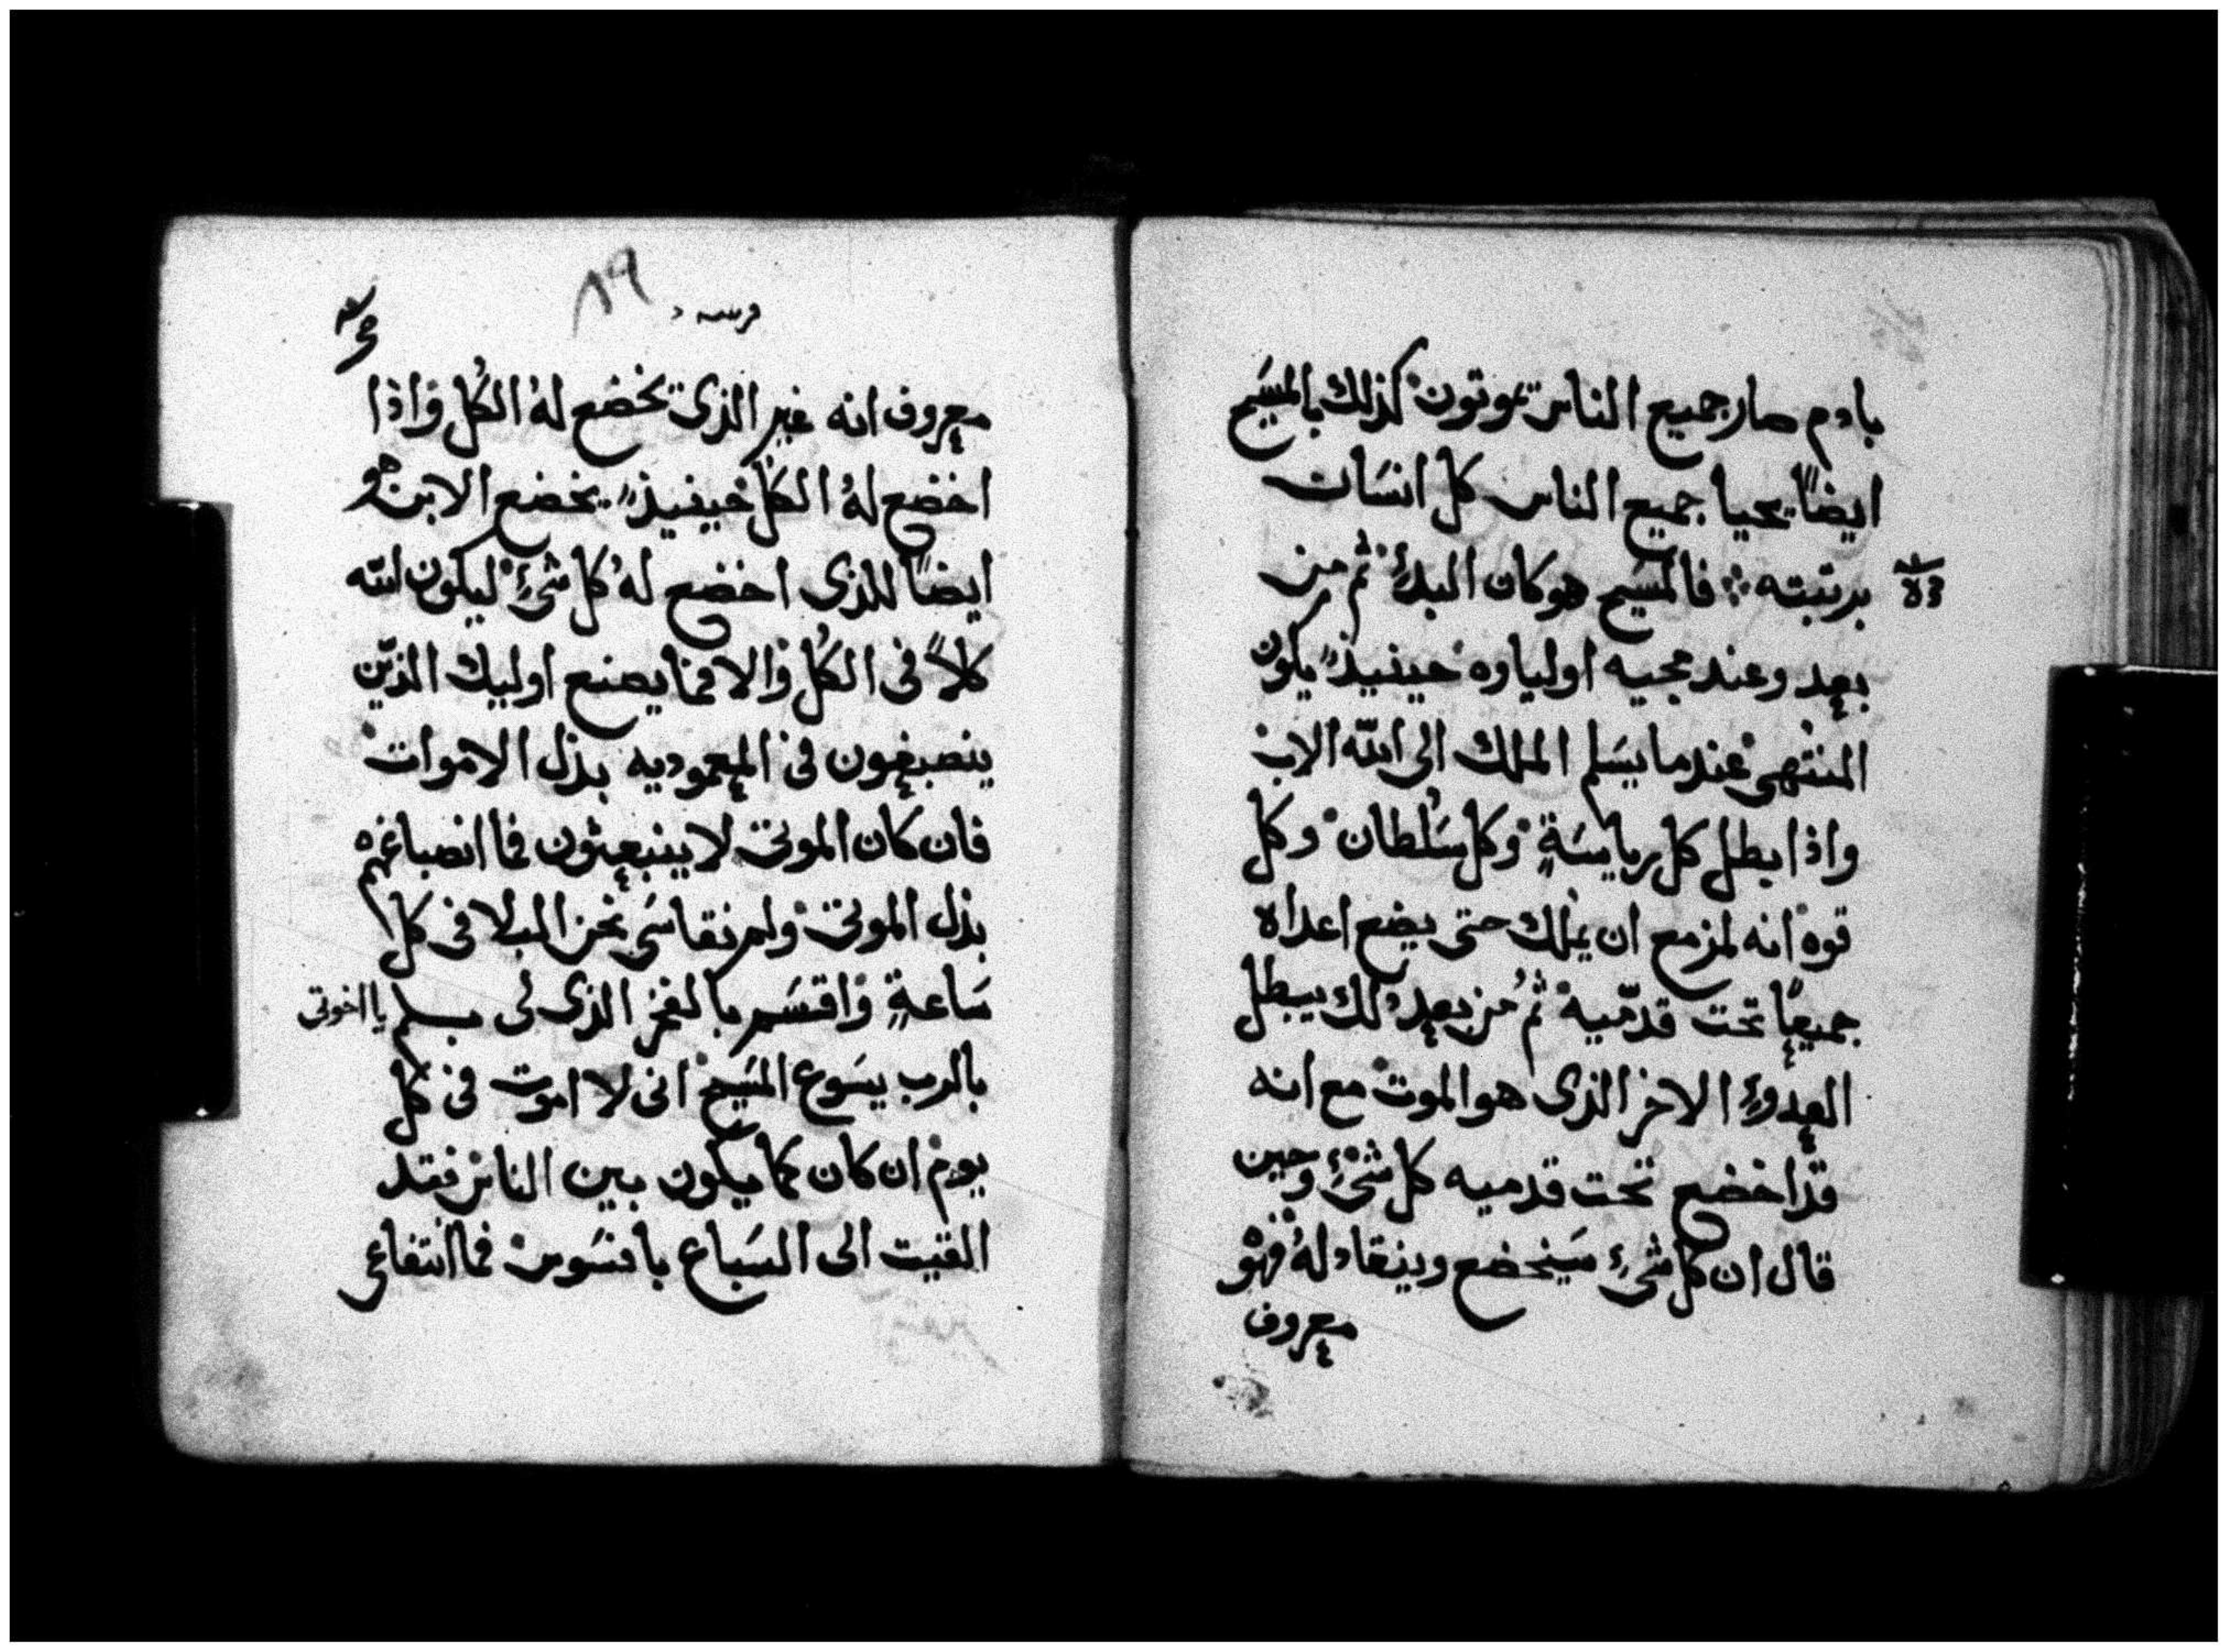 بادم صار جميع الناس يموتون كذلك بالمسَيح
ايضًا يحيا جميع الناس كل انسَان
برتبته ܀ فالمسَيح هو كان البدئ ثم من
بعد وعند مجيه اولياوه حينيذٍ يكون
المنتهى عندما يسَلم الملك الى الله الاب
واذا بطل كل رياسَةٍ وكل سُلطان وكل
قوه انه لمزمع ان يملك حتى يضع اعداه
جميعًا تحت قدميه ثم من بعد ذلك يبطل
العدوء الاخر الذى هو الموت مع انه
قد اخضع تحت قدميه كل شئٍ وحين
قال ان كل شئٍ سَيخضع وينقاد لهُ فهو
معروف
٨٩
معروف انه غير الذى يخضع لهُ الكُل واذا
اخضع لهُ الكل حينيذٍ يخضع الابن هو
ايضًا للذى اخضع لهُ كل شئٍ ليكون الله
كلاً فى الكُل والا فما يصنع اوليك الذين
ينصبغون فى المعموديه بدل الاموات
فان كان الموتى لا ينبعثون فما انصباغهم
بدل الموتى ولم نقاسَى نحن البلا فى كل
سَاعةٍ واقتسَم بالفخر الذى لى بكم يا اخوتى
بالرب يسَوع المسَيح انى لا اموت فى كل
يوم ان كان كما يكون بين الناس فقد
القيت الى السَباع بافسَوس فما انتفاعى